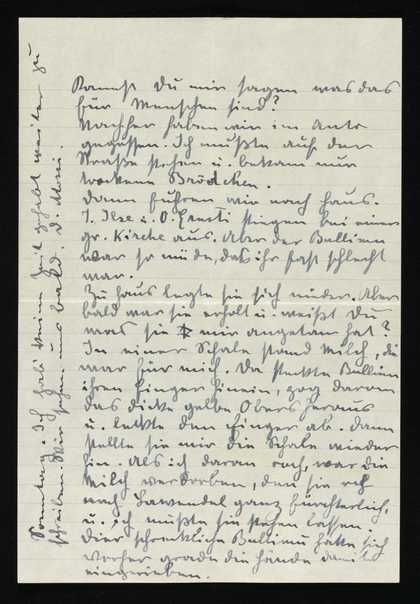 Kannst du mir sagen was das
für Menschen sind?
Nachher haben wir im Auto
gegessen. Ich mußte auf der
Straße stehen u. bekam nur
trockene Brödchen.
Dann fuhren wir nach Haus.
T. Ilse u. O. Ernst stiegen bei einer
gr. Kirche aus. Aber der Bullinn
war so müde, das ihr fast schlecht
war.
Zu haus legte sie sich nieder. Aber
bald war sie erholt u. weißt du
was sie mir angetan hat?
In einer Schale stand Milch, die
war für mich. Da steckte Bullinn
ihren Finger hinein, zog daran
das dicke gelbe Obers heraus
u. leckte den Finger ab. Dann
stellte sie mir die Schale wieder
hin. Als ich daran roch, war die
Milch verdorben, denn sie roch
nach Lawendel ganz fürchterlich,
u. ich mußte sie stehen lassen.
Dier schreckliche Bullinn hatte sich
vorher grade die Hände damit
eingerieben.
Sonntag. Ich hab keine Zeit gehabt weiter zu
schreiben. Wir sehen uns bald. D.